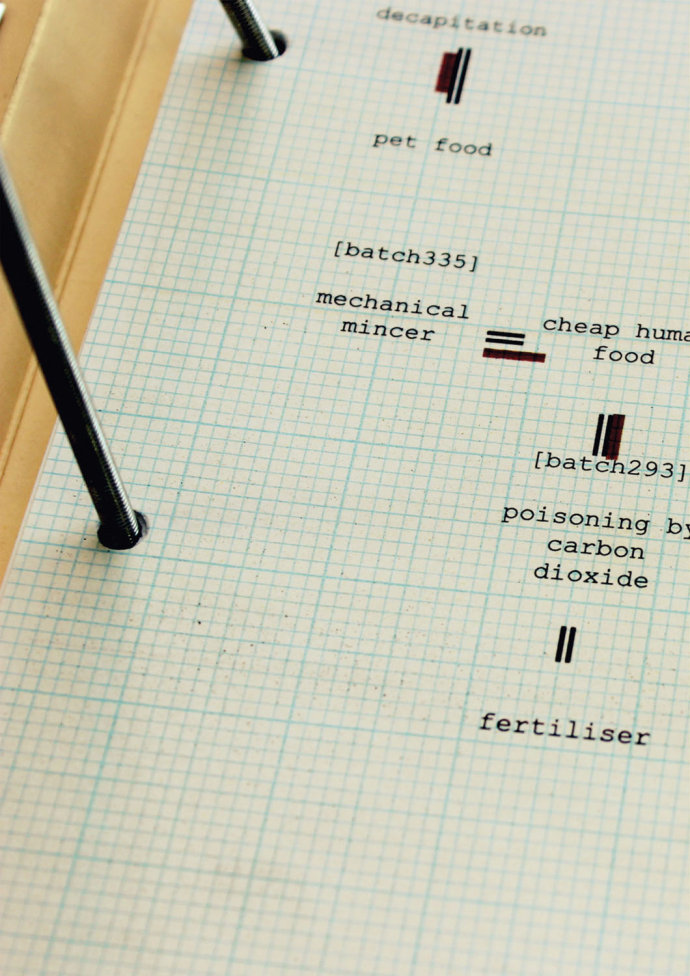 decapitation
pet food
[batch335]
mechanical
mincer
cheap huma
food
[batch293]
poisoning by
carbon
dioxide
fertiliser